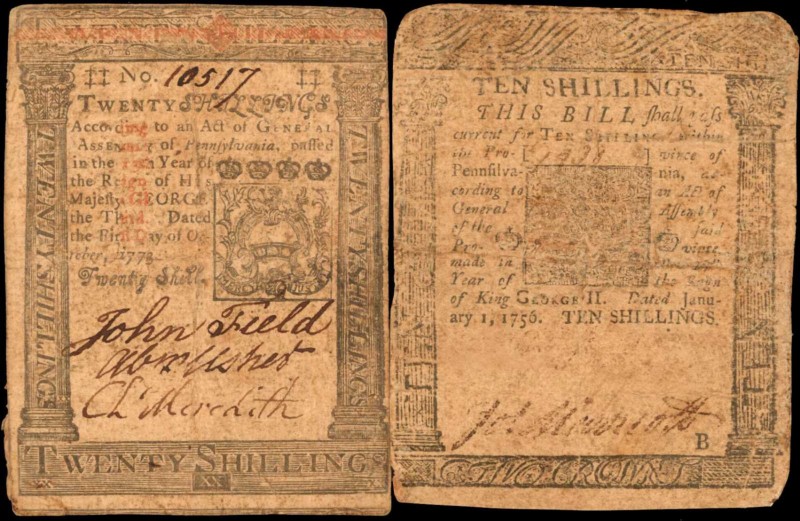 II No. 10517 II
TWENTY SHILLINGS
According to an Act of GENERAL
ASSEMBLY of Pennsylvania, passed
in the Year of
the Reign of His
Majesty GEORGE
the Third. Dated
the First Day of Oc-
tober, 1773.
Twenty Shill.
John Field
Abm Usher
Ch Meredith
TWENTY SHILLINGS
XX
TWENTY SHILLINGS
TWENTY SHILLINGS
TEN SHI
TEN SHILLINGS.
THIS BILL shall
current for TEN SHILLINGS within
the Pro- [ ] vince of
Pennsilva- nia, ac-
cording to an Act of
General Assembly
of the said
Pro- vince
made in
Year of the Reign
of King GEORGE II. Dated Janu-
ary 1, 1756. TEN SHILLINGS.
B
TWO CROWNS
TEN
TEN